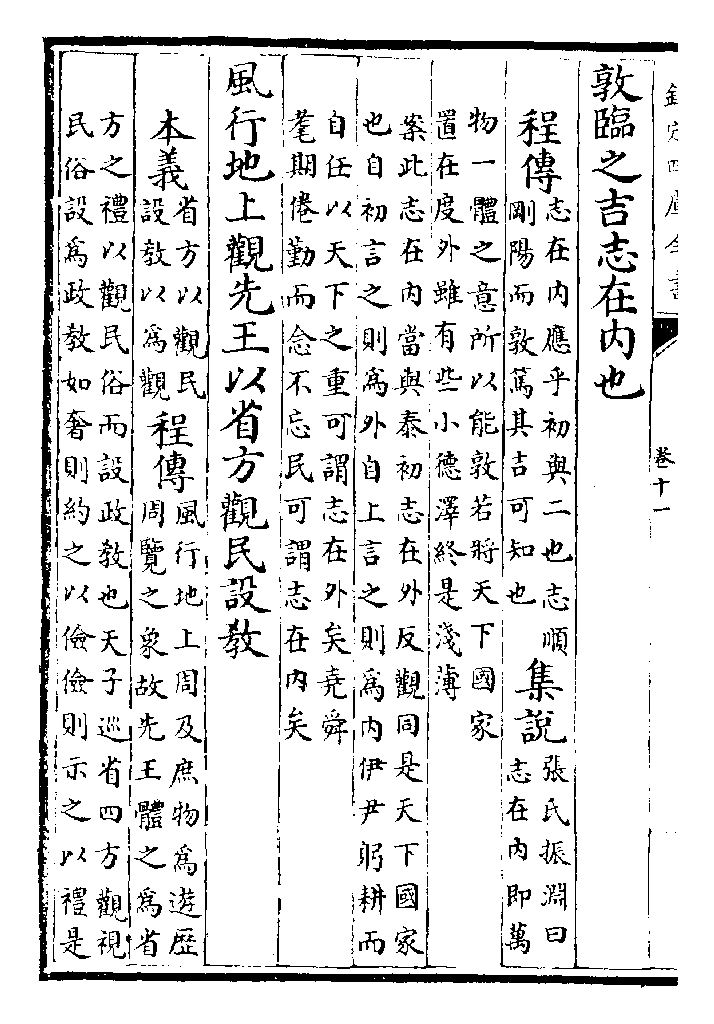 欽定四庫全書
卷十一
敦臨之吉志在内也
程傳
志在内應乎初與二也志順
剛陽而敦篤其吉可知也
集說
張氏振淵曰
志在内即萬
物一體之意所以能敦若將天下國家
置在度外雖有些小德澤終是淺薄
案此志在内當與泰初志在外反觀同是天下國家
也自初言之則為外自上言之則為内伊尹躬耕而
自任以天下之重可謂志在外矣堯舜
耄期倦勤而念不忘民可謂志在内矣
風行地上觀先王以省方觀民設教
本義
省方以觀民
設教以為觀
程傳
風行地上周及庶物為遊歷
周覽之象故先王體之為省
方之禮以觀民俗而設政教也天子巡省四方觀視
民俗設為政教如奢則約之以儉儉則示之以禮是